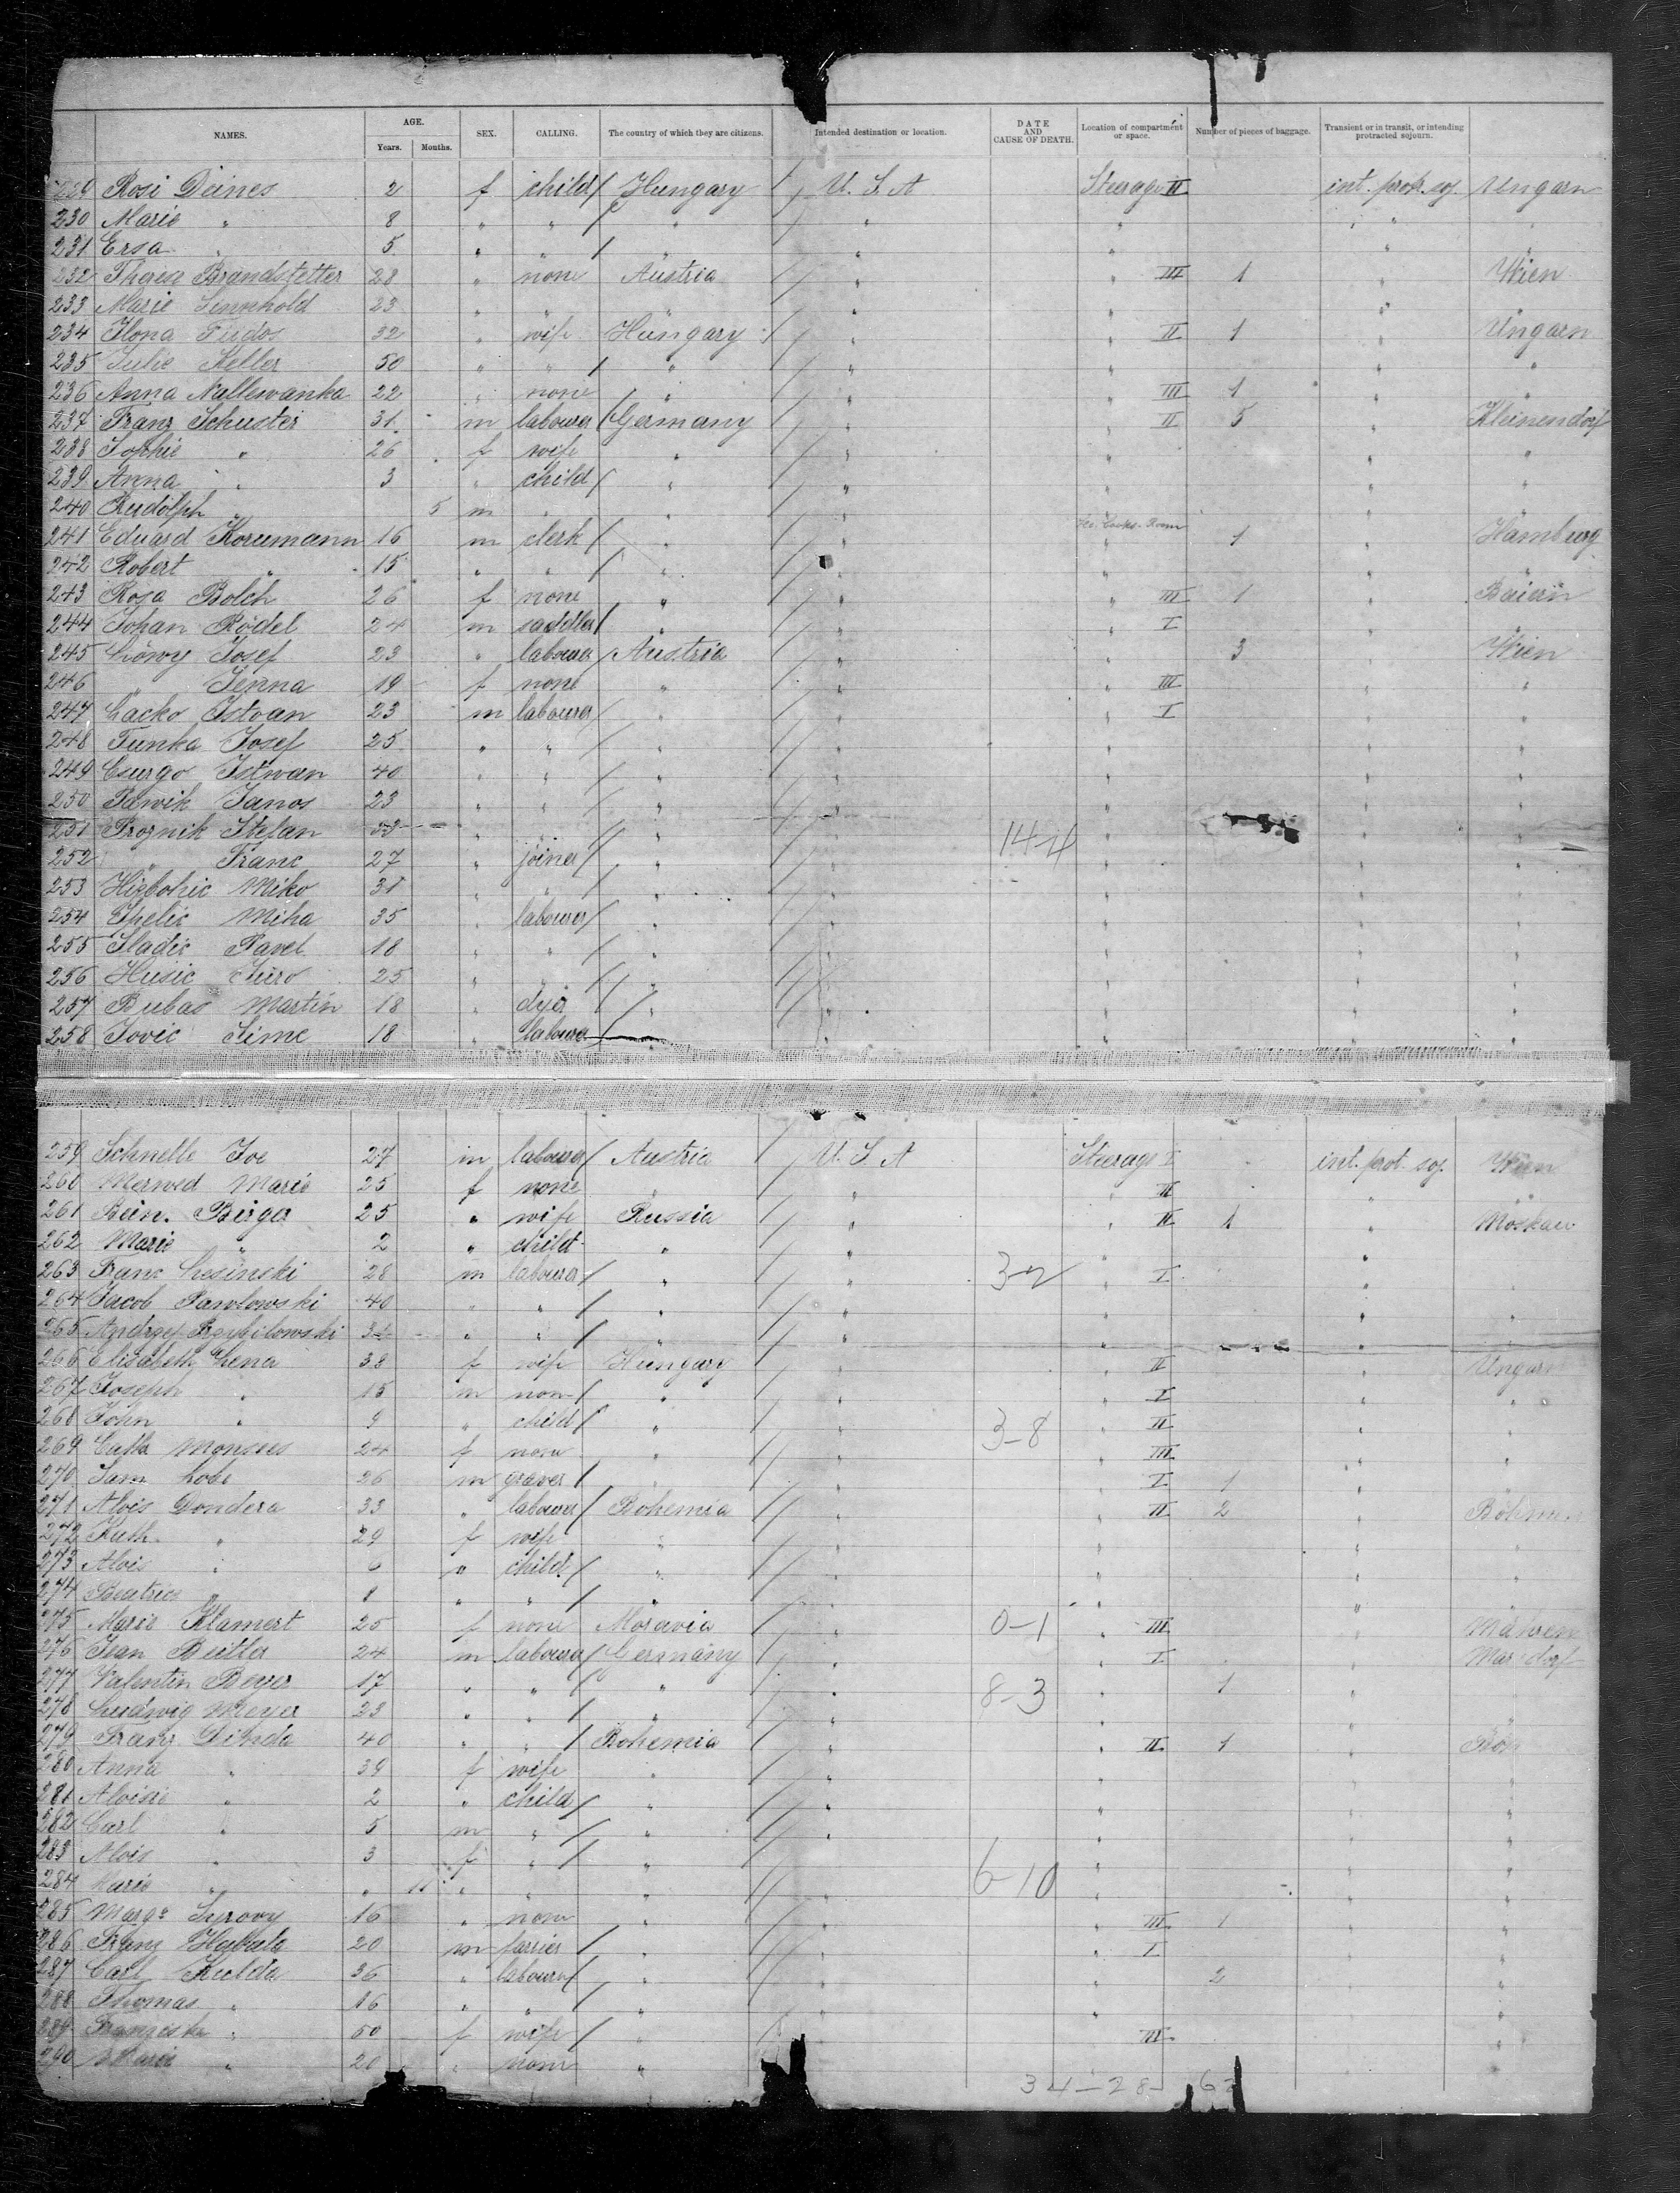 NAMES. AGE. Years. Months. SEX. CALLING. The country of which they are citizens. Intended destination or location. DATE AND CAUSE OF DEATH. Location of compartment or space. Number of pieces of baggage. Transient or in transit, or intending protracted sojourn.
229 Rosi Deines 2 f child / Hungary / U. S. A Steerage II int. prot. soj. Ungarn
230 Marie " 8 " " / " " " " "
231 Ersa " 5 " " / " " " " "
232 Therese Brandstetter 28 " none Austria " " III 1 " Wien
233 Marie 23 " " " " " "
234 Ilona 32 " wife Hungary / " " II 1 " Ungarn
235 Julie Keller 50 " " / " " " " "
236 Anna Nallewanka 22 " none " " " III 1 " "
237 Franz Schuster 31 m labourer / Germany " " II 5 " Kleinendorf
238 Sophie " 26 f wife " " " " "
239 Anna " 3 " child / " " " " "
240 Rudolph " 5 m " " " " "
241 Eduard Korumann 16 m clerk / " " 1 " Hamburg
242 Robert " 15 " " / " " " " "
243 Rosa Bolch 26 f none " " " III 1 " Baiern
244 Johan Rödel 24 m saddler / " " " I " "
245 Löwy Josef 23 " labourer / Austria " " 3 " Wien
246 " Jenna 19 f none " " " III " "
247 Lacko Istvan 23 m labourer / " " " I " "
248 Funka Josef 25 " " / " " " " "
249 Csurgo Istwan 40 " " / " " " " "
250 Pawik Janos 23 " " / " " " " "
251 Proznik Stefan 33 " " / " " 14-4 " " "
252 " Franc 27 " joiner / " " " " "
253 Miko 31 " " / " " " " "
254 Miha 35 " labourer / " " " " "
255 Sladic Pavel 18 " " / " " " " "
256 Husic Juro 25 " " / " " " " "
257 Bubas Martin 18 " dyer / " " " " "
258 Jovic Sime 18 " labourer / " " " " "
259 Schnelle Joe 27 m labourer / Austria / U. S. A Steerage I int. prot. soj. Wien
260 Marie 25 f none " " " III " "
261 Birger 25 " wife Russia " " II 1 " Moskau
262 Marie " 2 " child " " " "
263 Franc Lesinski 28 m labourer / " " 3-2 " I " "
264 Jacob Pawlowski 40 " " / " " " " "
265 Andrzej Przybilowski " " / " " " " "
266 Elisabeth Lena 38 f wife Hungary " " II " Ungarn
267 Joseph " 15 m none / " " " I " "
268 John " 9 " child / " " 3-8 " II " "
269 Monsees 24 f none " " " III " "
270 Sam Lobe 26 m graver / " " " I 1 " "
271 Alois Dondera 33 " labourer / Bohemia " " II 2 " Böhmen
272 Kath. " 29 f wife " " " " "
273 Alois " 6 " child / " " " " "
274 Beatrice " 8 " " / " " " " "
275 Marie Klamert 25 f none Moravia " 0-1 " III " Mähren
276 24 m labourer / Germany " " I "
277 Valentin Beyer 17 " " / " " 8-3 " 1 " "
278 Ludwig Meyer 23 " " / " " " " "
279 Franz 40 " " / Bohemia " " II 1 " Böh
280 Anna " 39 f wife " " " " "
281 Aloisie " 2 " child / " " " " "
282 Carl " 5 m " / " " " " "
283 Alois " 3 f " / " " 6-10 " " "
284 Marie " " 11 " " " " " " "
285 Marg. Syrovy 16 " none " " " III 1 " "
286 Franz 20 m farrier / " " " I " "
287 Carl Kulda 36 " labourer / " " " 2 " "
288 Thomas " 16 " " / " " " " "
289 Franziska " 50 f wife / " " III " "
290 Marie " 20 " none " "
34-28-62